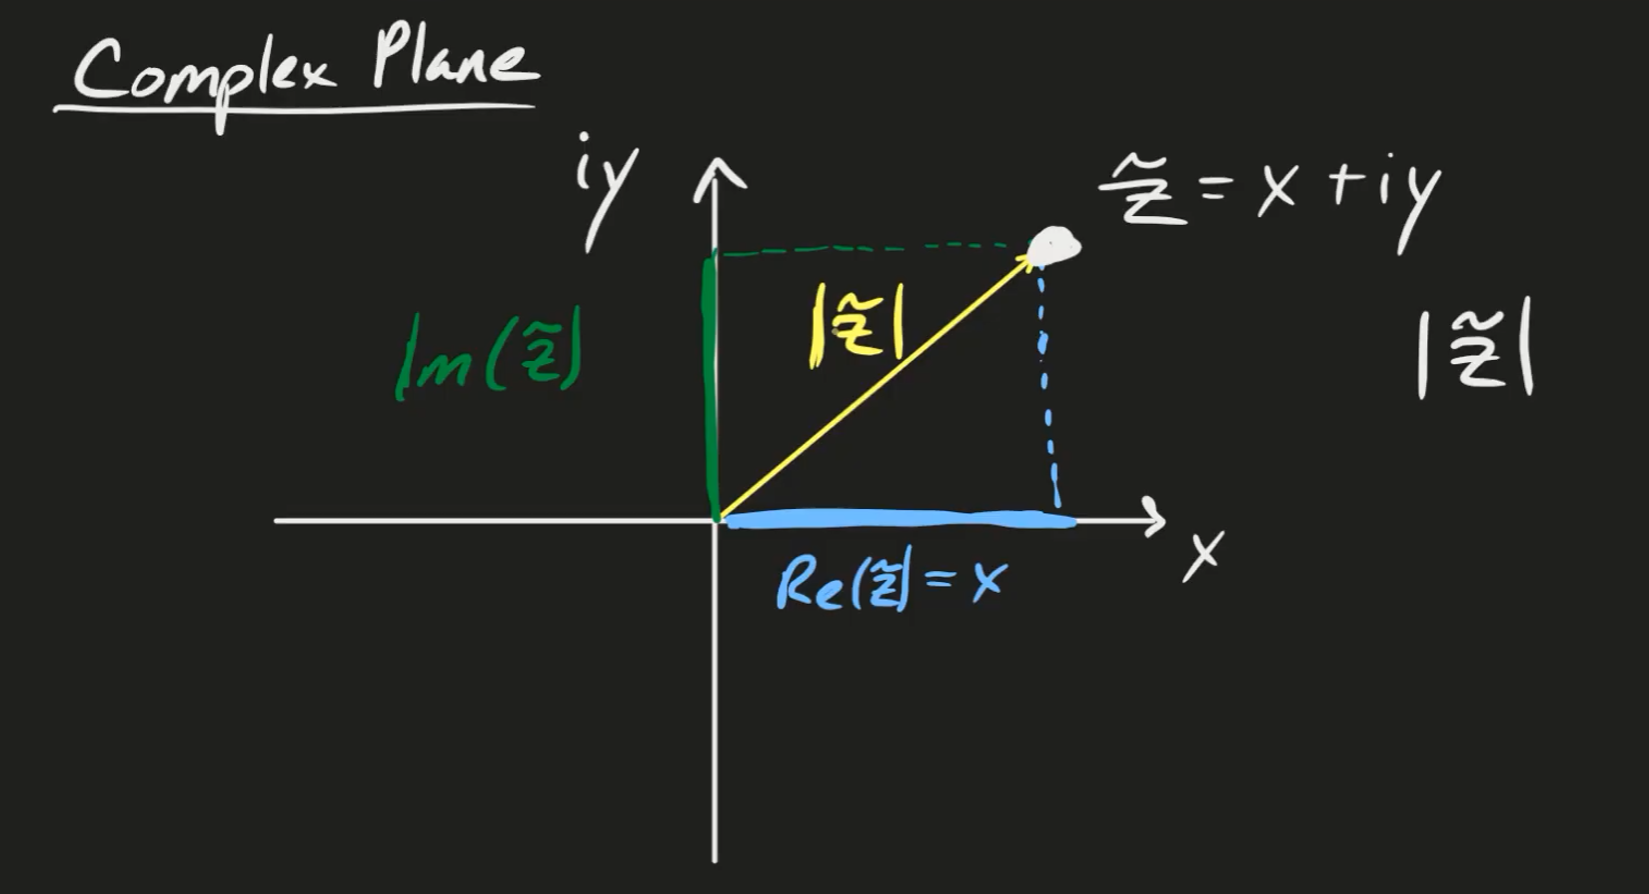 Complex Plane
iy
z̃ = x + iy
|z̃|
|z̃|
Im(z̃)
x
Re(z̃) = x